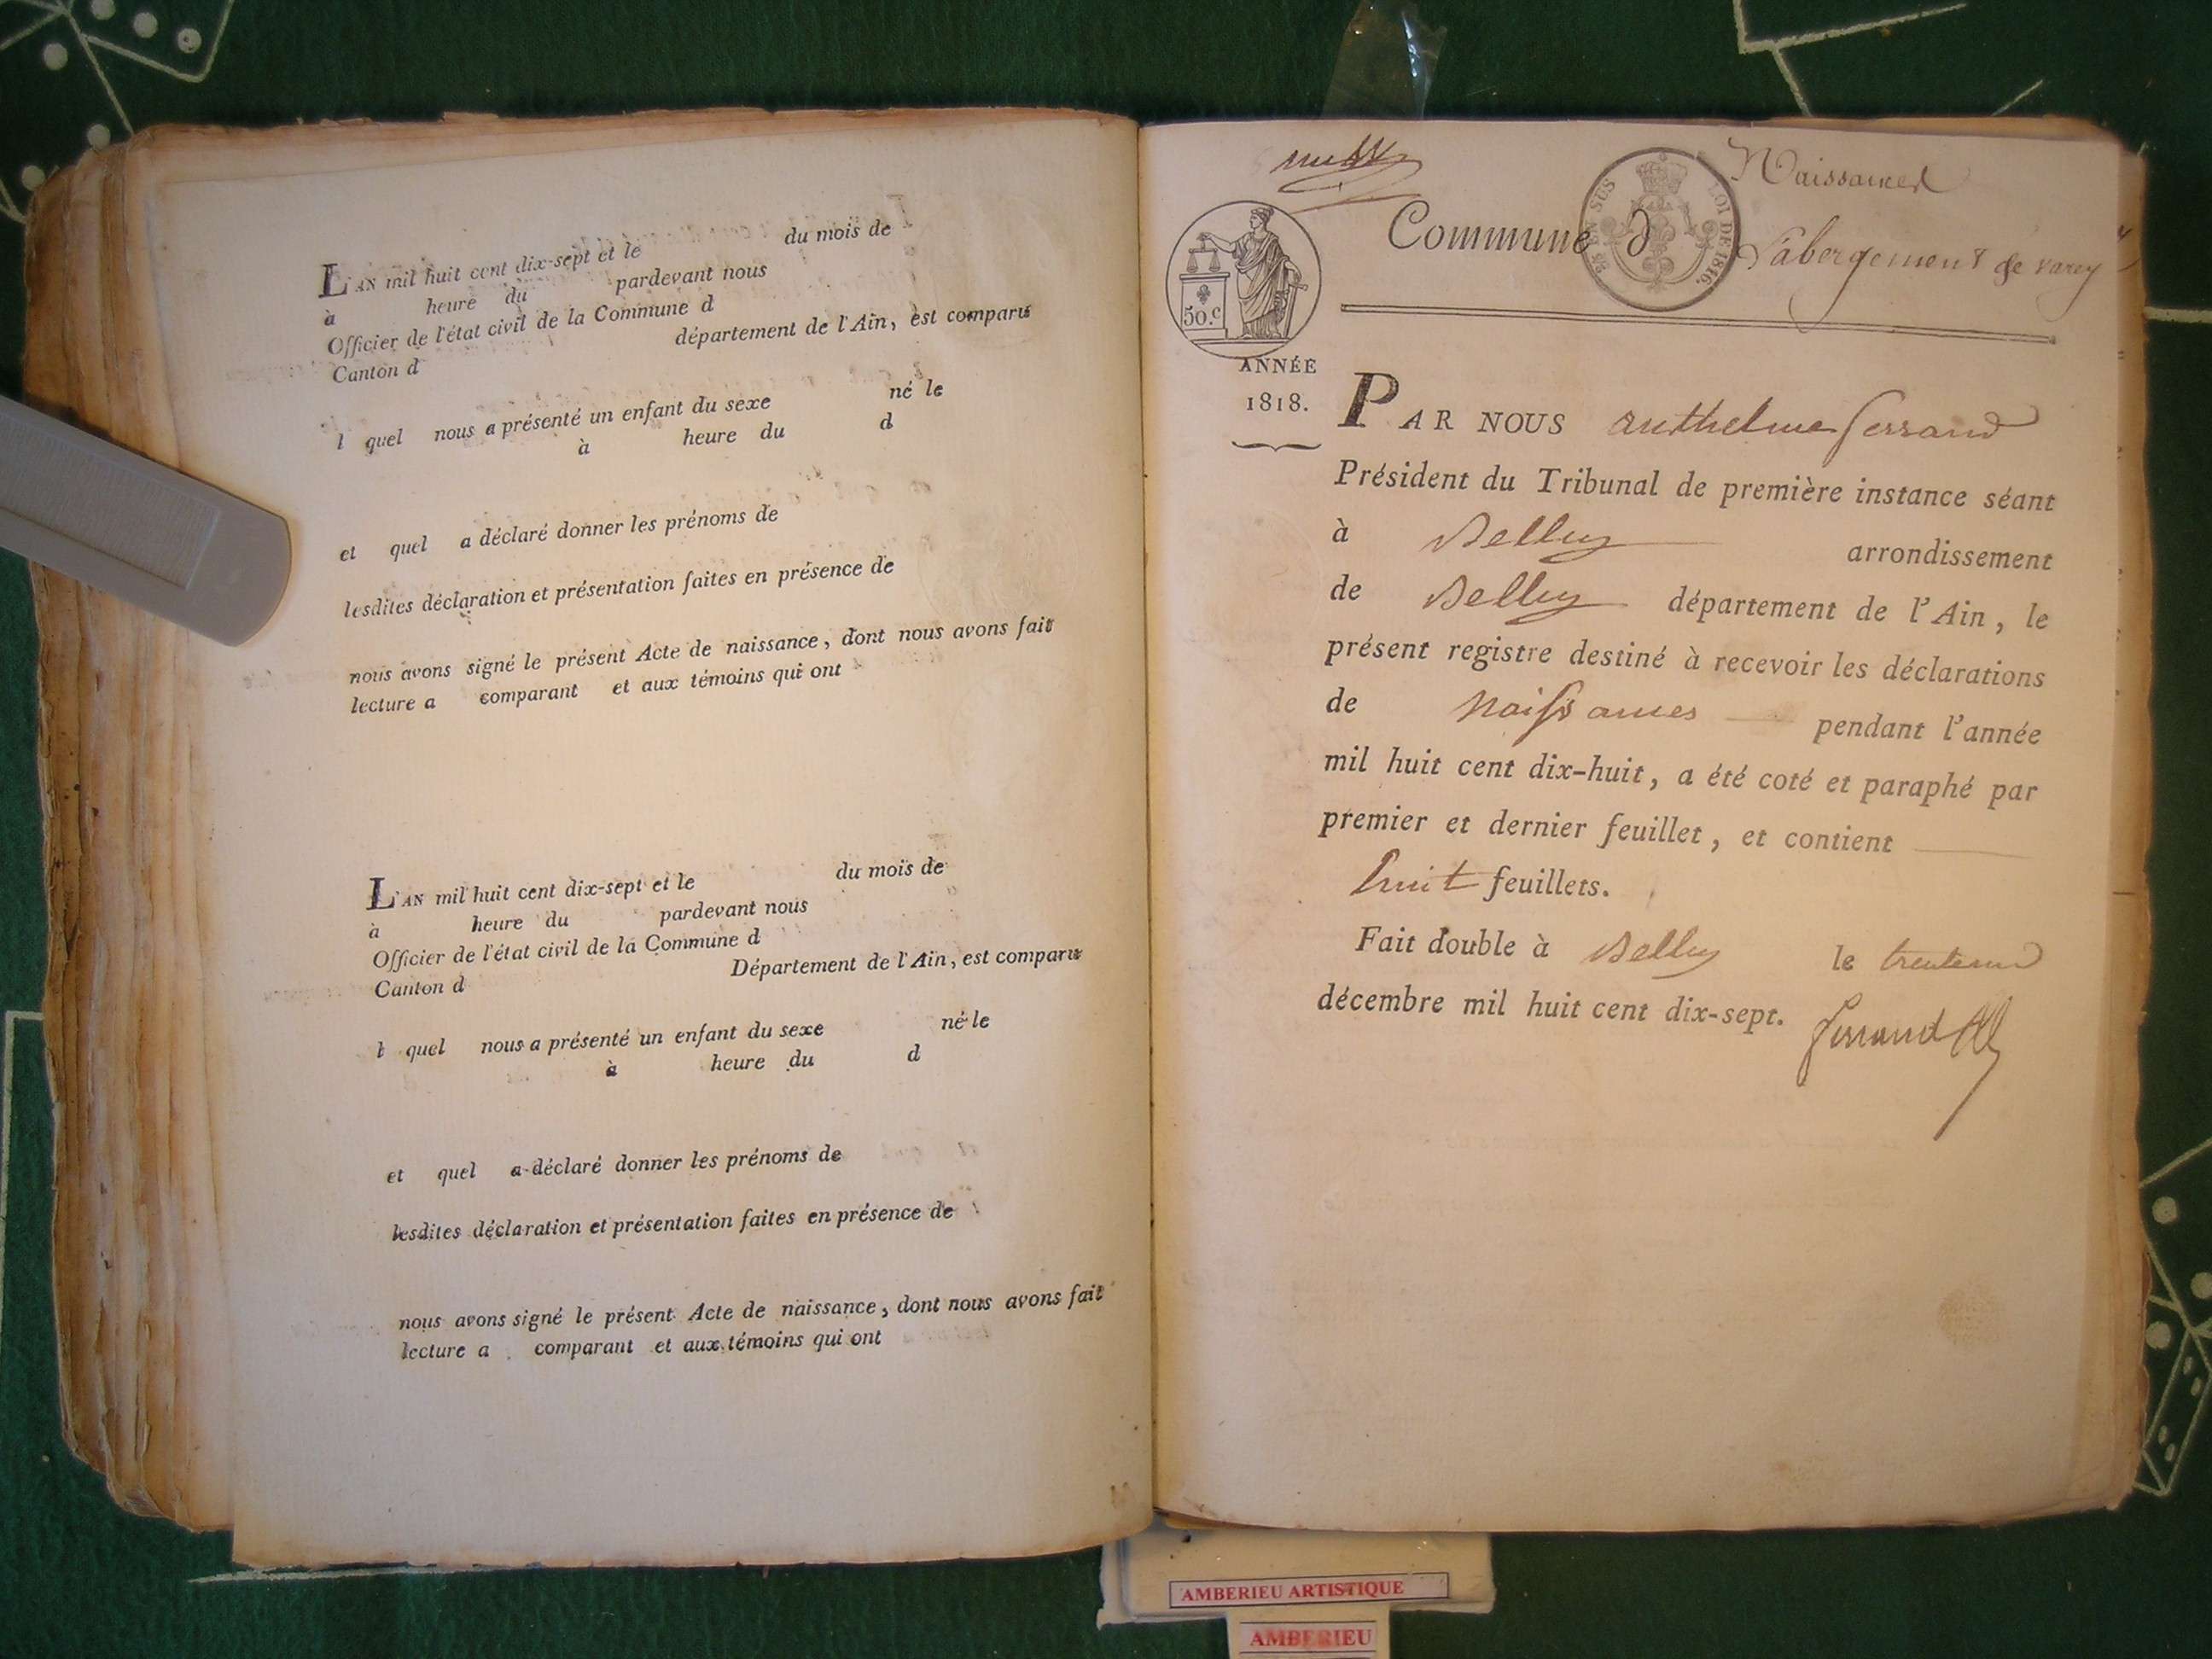 L'AN mil huit cent dix-sept et le du mois de
à heure du pardevant nous
Officier de l'état civil de la Commune d
Canton d département de l'Ain, est comparu
l quel nous a présenté un enfant du sexe né le
à heure du d
et quel a déclaré donner les prénoms de
lesdites déclaration et présentation faites en présence de
nous avons signé le présent Acte de naissance, dont nous avons fait
lecture a comparant et aux témoins qui ont
L'AN mil huit cent dix-sept et le du mois de
à heure du pardevant nous
Officier de l'état civil de la Commune d
Canton d Département de l'Ain, est comparu
l quel nous a présenté un enfant du sexe né le
à heure du d
et quel a déclaré donner les prénoms de
lesdites déclaration et présentation faites en présence de
nous avons signé le présent Acte de naissance, dont nous avons fait
lecture a comparant et aux témoins qui ont
Naissances
Commune d L'abergement de varey
EN SUS LOI DE 1816.
50.c
ANNÉE
1818.
PAR NOUS anthelme ferrand
Président du Tribunal de première instance séant
à Belley arrondissement
de Belley département de l'Ain, le
présent registre destiné à recevoir les déclarations
de Naissances pendant l'année
mil huit cent dix-huit, a été coté et paraphé par
premier et dernier feuillet, et contient
huit feuillets.
Fait double à Belley le trente un
décembre mil huit cent dix-sept.
ferrand
AMBERIEU ARTISTIQUE
AMBERIEU